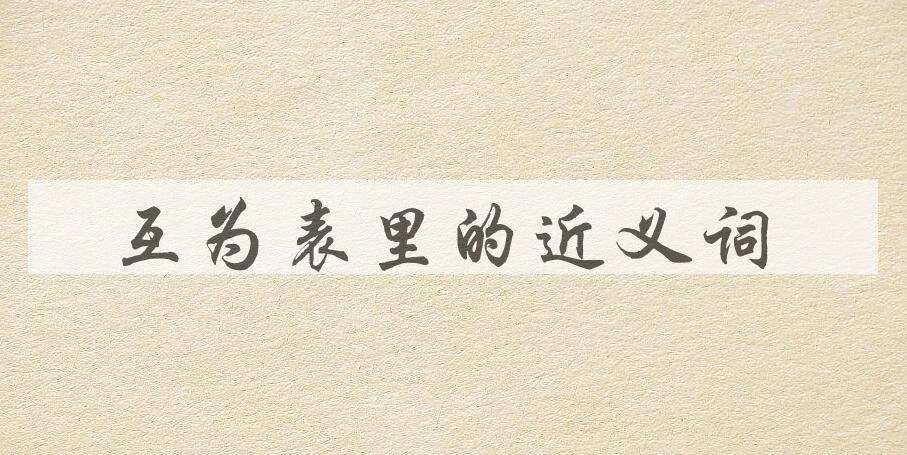 互为表里的近义词